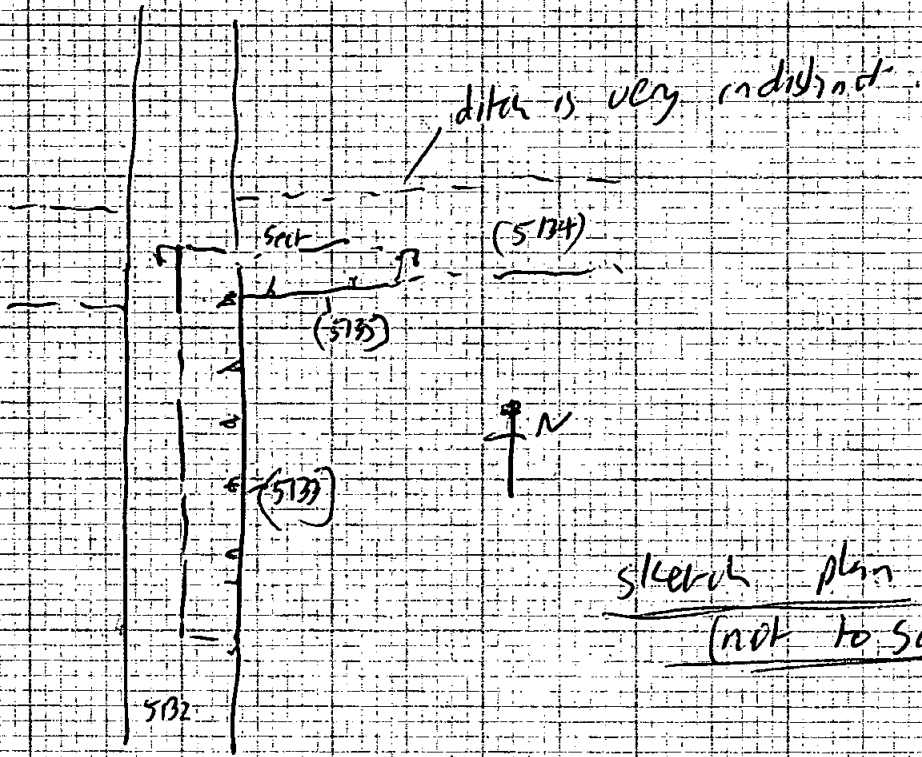 ditch is very indistinct
Sect
(5134)
(5135)
N
(5133)
sketch plan
(not to sc
5132